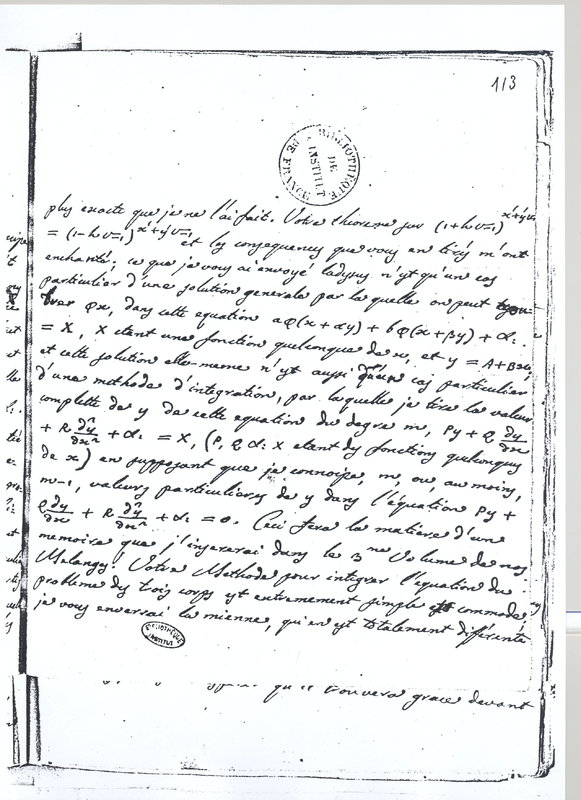 113
BIBLIOTHÈQUE
DE
L'INSTITUT
DE FRANCE
plus exacte que je ne l'ai fait. Votre theoreme sur (1+h√-1)^x'+y'√-1
= (1-h√-1)^x'+y'√-1 et les consequences que vous en tirés m'ont
enchanté; ce que je vous ai envoyé ladessus n'est qu'un cas
particulier d'une solution generale par laquelle on peut
φx, dans cette equation aφ(x+αy) + bφ(x+βy) + &c.
= X, X etant une fonction quelconque de x, et y = A+Bx;
et cette solution elle-meme n'est aussi qu'un cas particulier
d'une methode d'integration, par laquelle je tire la valeur
complette de y de cette equation du degre m, Py + Q dy/dx
+ R d²y/dx² + &c. = X, (P, Q &c. X etant des fonctions quelconques
de x) en supposant que je connoisse, m, ou, au moins,
m-1, valeurs particulieres de y dans l'équation Py +
Q dy/dx + R d²y/dx² + &c. = 0. Ceci fera la matiere d'une
memoire que j'insererai dans le 3me Volume de nos
Melanges. Votre Methode pour integrer l'équation du
problème des trois corps est extremement simple et commode,
je vous enverrai la mienne, qui en est totalement differente
BIBLIOTHÈQUE
INSTITUT
qu'il trouvera grace devant